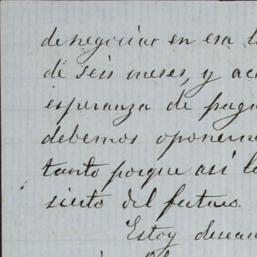 de negociar en esa
de seis meses, y
esperanza de
debemos
tanto porque así
siento del futuro.
Estoy